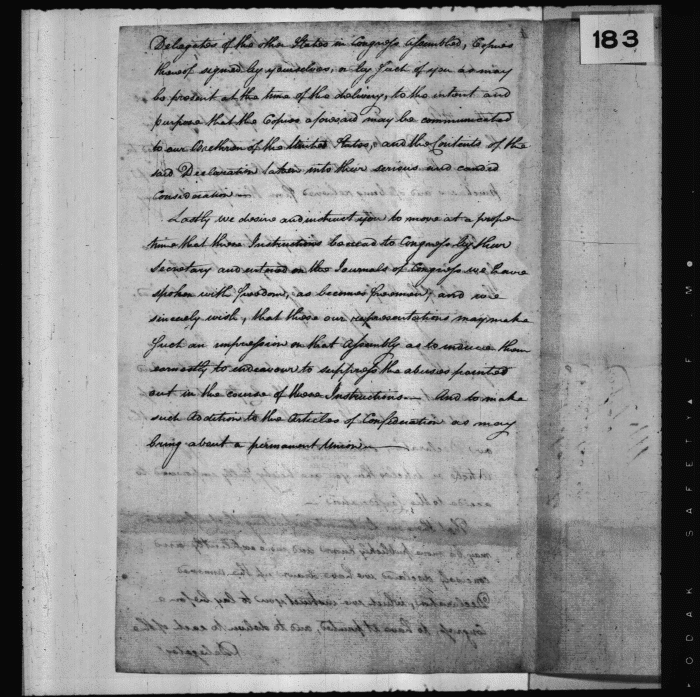 183
Delegates of the other States in Congress Assembled, Copies
thereof signed by yourselves, or by Such of you as may
be present at the time of the delivery, to the intent and
purpose that the Copies aforesaid may be communicated
to our Brethren of the United States, and the Contents of the
said Declaration taken into their serious and candid
Consideration
Lastly we desire and instruct you to move at a proper
time that these Instructions be read to Congress by their
Secretary and entered on the Journals of Congress we have
spoken with freedom, as becomes freemen, and we
sincerely wish, that these our representations may make
Such an impression on that Assembly as to induce them
earnestly to endeavour to suppress the abuses pointed
out in the course of these Instructions And to make
such Addition to the Articles of Confederation as may
bring about a permanent Union
KODAK SAFETY FILM